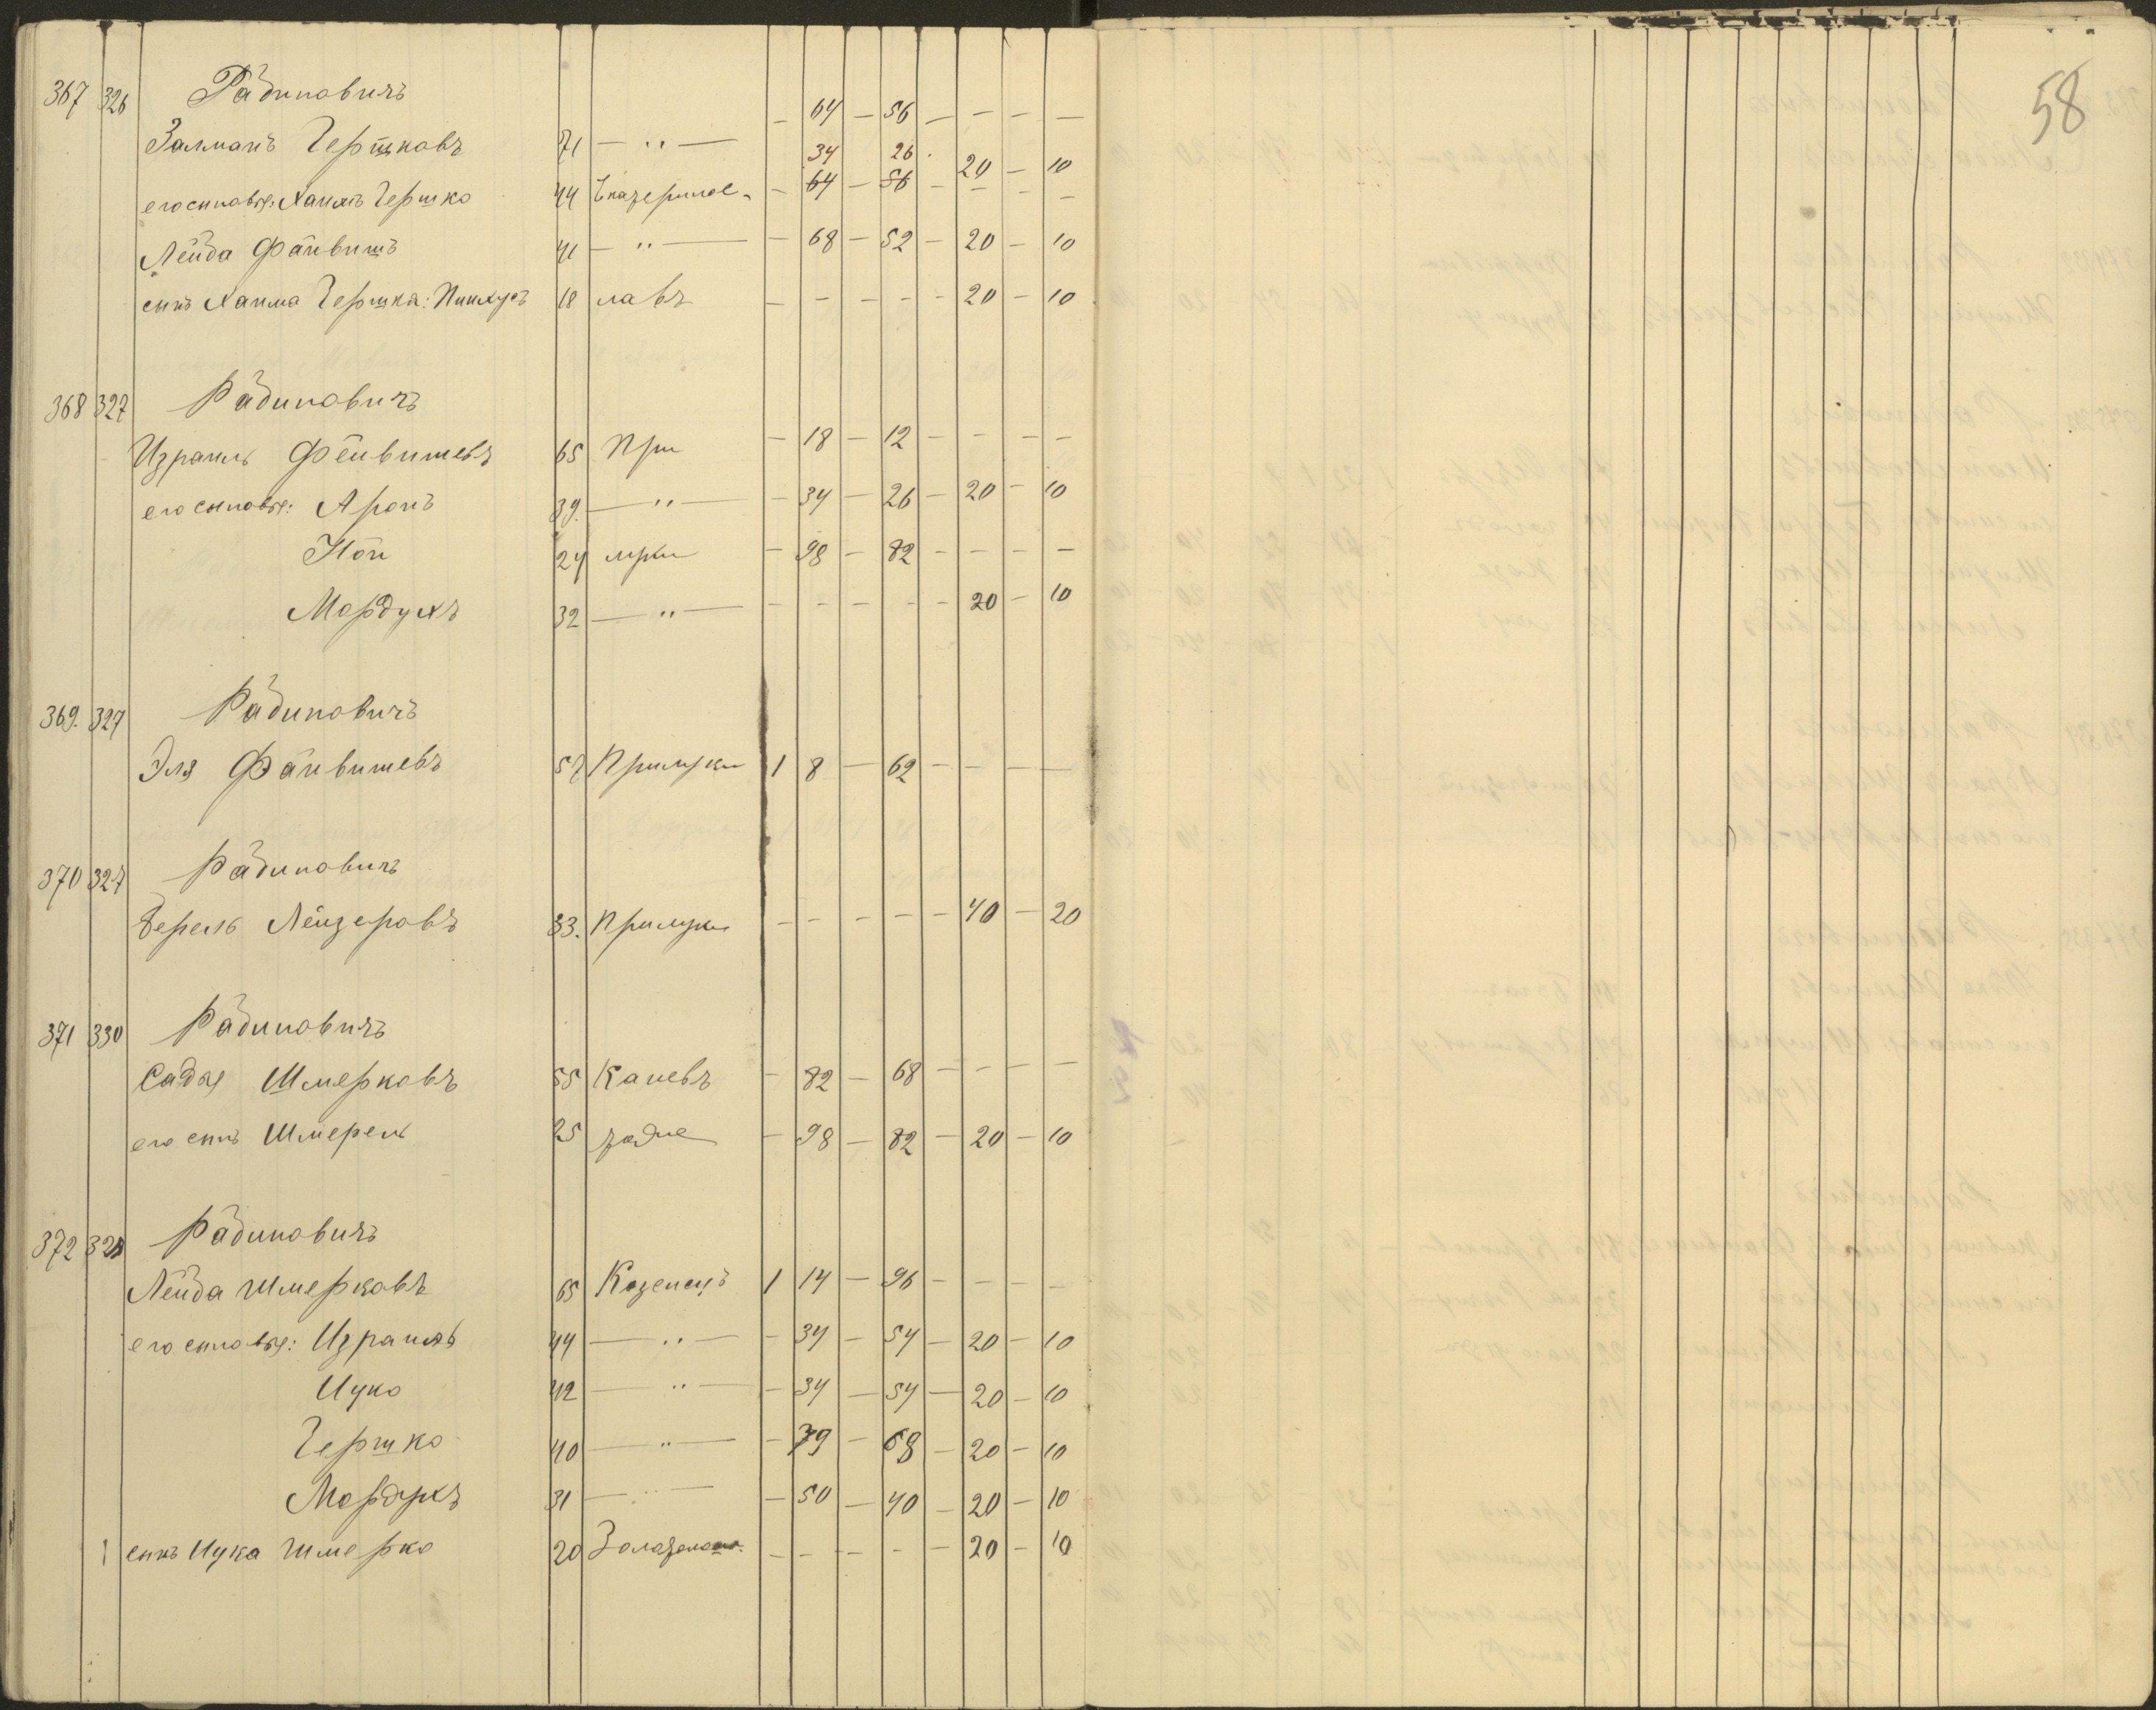 58
367 326 Рабиновичъ — 64 — 56 — — — —
Залманъ Гершковъ 71 — " — 34 26 20 — 10
его сыновья: Хаимъ Гершко 44 Екатеринос- — 64 — 56 — — — —
Лейба Файвишъ 41 — " — — 68 — 52 — 20 — 10
сынъ Хаима Гершка: Пинхусъ 18 лавъ — — — — — 20 — 10
368 327 Рабиновичъ
Израиль Фейвишевъ 65 При — 18 — 12 — — — —
его сыновья: Аронъ 39. — " — — 34 — 26 — 20 — 10
Ной 24 луки — 98 — 82 — — — —
Мордухъ 32 — " — — — — — — 20 — 10
369. 327 Рабиновичъ
Эля Файвишевъ 57 Прилуки 1 8 — 62 — — — —
370 327 Рабиновичъ
Берель Лейзеровъ 33. Прилуки — — — — — 40 — 20
371 330 Рабиновичъ
Садья Шмерковъ 55 Каневъ — 82 — 68 — — — —
его сынъ Шмерель 25 тоже — 98 — 82 — 20 — 10
372 328 Рабиновичъ
Лейба Шмерковъ 65 Козелецъ 1 14 — 96 — — — —
его сыновья: Израиль 44 — " — — 34 — 54 — 20 — 10
Ицко 42 — " — — 34 — 54 — 20 — 10
Гершко 40 — " — — 79 — 68 — 20 — 10
Мордухъ 31 — " — — 50 — 40 — 20 — 10
сынъ Ицка Шмерко 20 Золотоноша. — — — — — 20 — 10